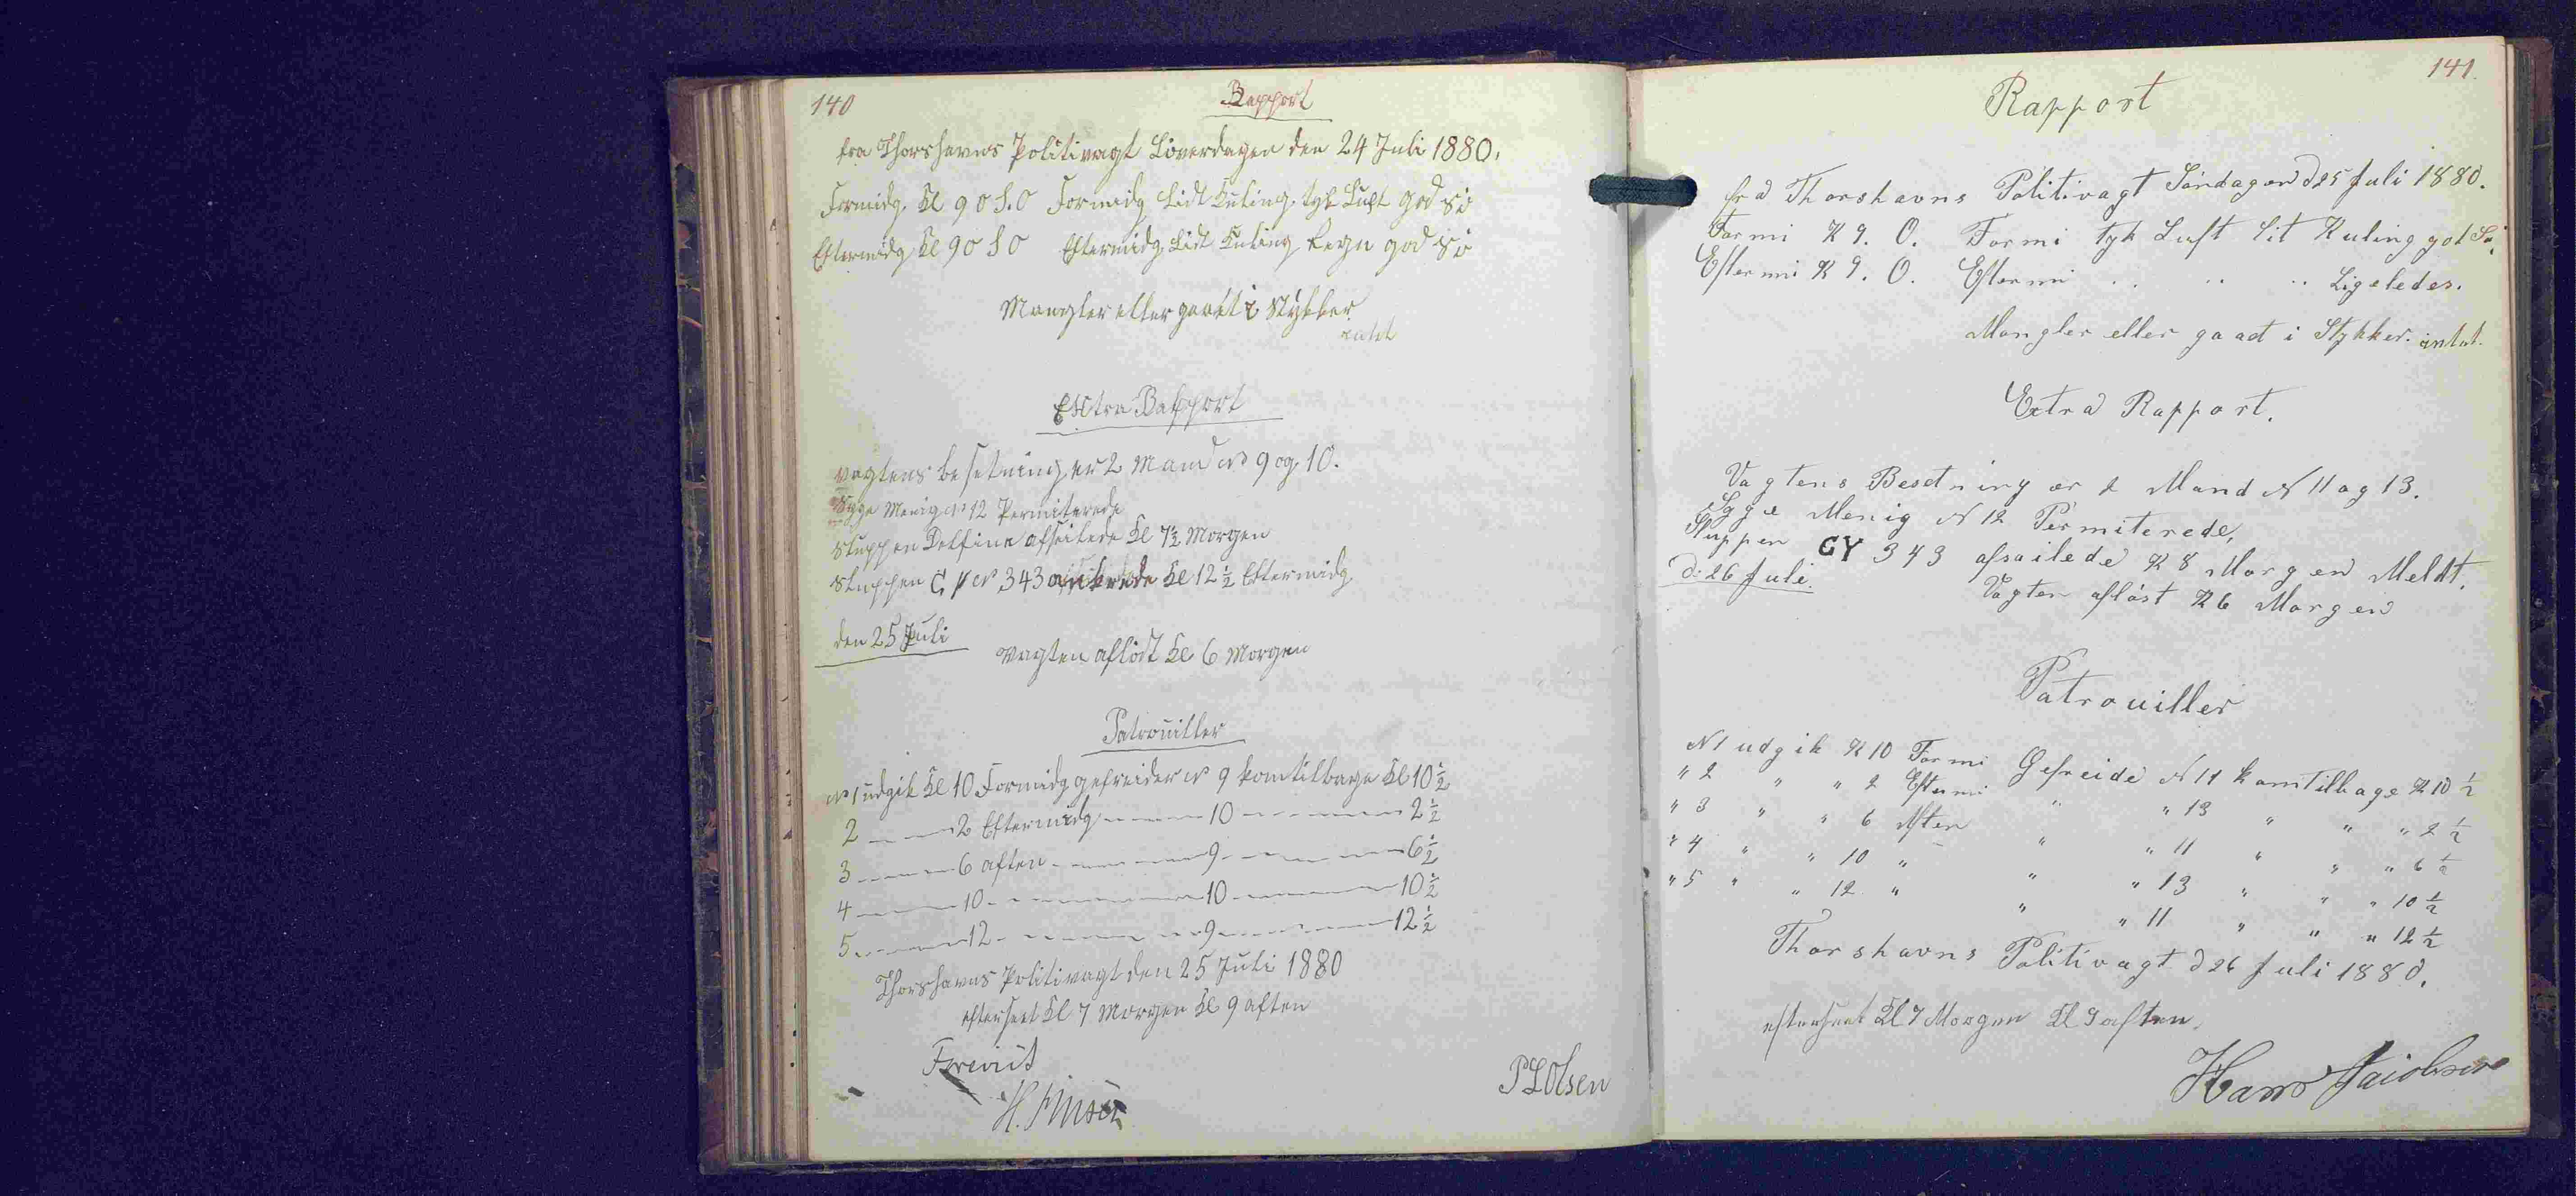 140
Rapport
fra Thorshavns Politivagt Löverdagen den 24 Juli 1880.
Formidg. Kl 9 0 S.O Formidg Lidt Kuling. tyk Luft god Sö
Eftermidg Kl 9 0 S O Eftermidg Lidt Kuling Regn god Sö
Mangler eller gaaet i Stykker
intet
Extra Rapport
Vagtens besetning er 2 Mand No 9 og 10.
Syge Menig No 12 Permiterede
Sluppen Delfinn afseilede Kl 7½ Morgen
Sluppen No 343 ankrede Kl 12½ Eftermidg
den 25 Juli
Vagten aflöst Kl 6 Morgen
Patrouiller
No 1 udgik Kl 10 Formidg gefreider No 9 kom tilbage Kl 10½
2 — — 2 Eftermidg — — 10 — — 2½
3 — — 6 aften — — 9 — — 6½
4 — — 10 — — 10 — — 10½
5 — — 12 — — 9 — — 12½
Thorshavns Politivagt den 25 Juli 1880
efterseet Kl 7 Morgen Kl 9 aften
Forevist
H. Finsen
P L Olsen
141.
Rapport
fra Thorshavns Politivagt Söndagen d 25 Juli 1880.
Formi K 9. O. Formi tyk Luft Lit Kuling got Sö.
Eftermi K 9. O. Eftermi " " " Ligeledes.
Mangler eller gaaet i Stykker. intet.
Extra Rapport.
Vagtens Besetning er 2 Mand N 11 og 13.
Syge Menig N 12 Permiterede,
Sluppen GY 343 afsailede K 8 Morgen Meldt.
d: 26 Juli.
Vagten aflöst K 6 Morgen
Patrouiller
N 1 udgik K 10 Formi Gefreide N 11 kom Tilbage K 10½
" 2 " " 2 Eftermi " " 13 " " " 2½
" 3 " " 6 Aften " " 11 " " " 6½
" 4 " " 10 " " " 13 " " " 10½
" 5 " " 12 " " " 11 " " " 12½
Thorshavns Politivagt d 26 Juli 1880.
efterseet Kl 7 Morgen Kl 9 aften.
Hans Jacobsen